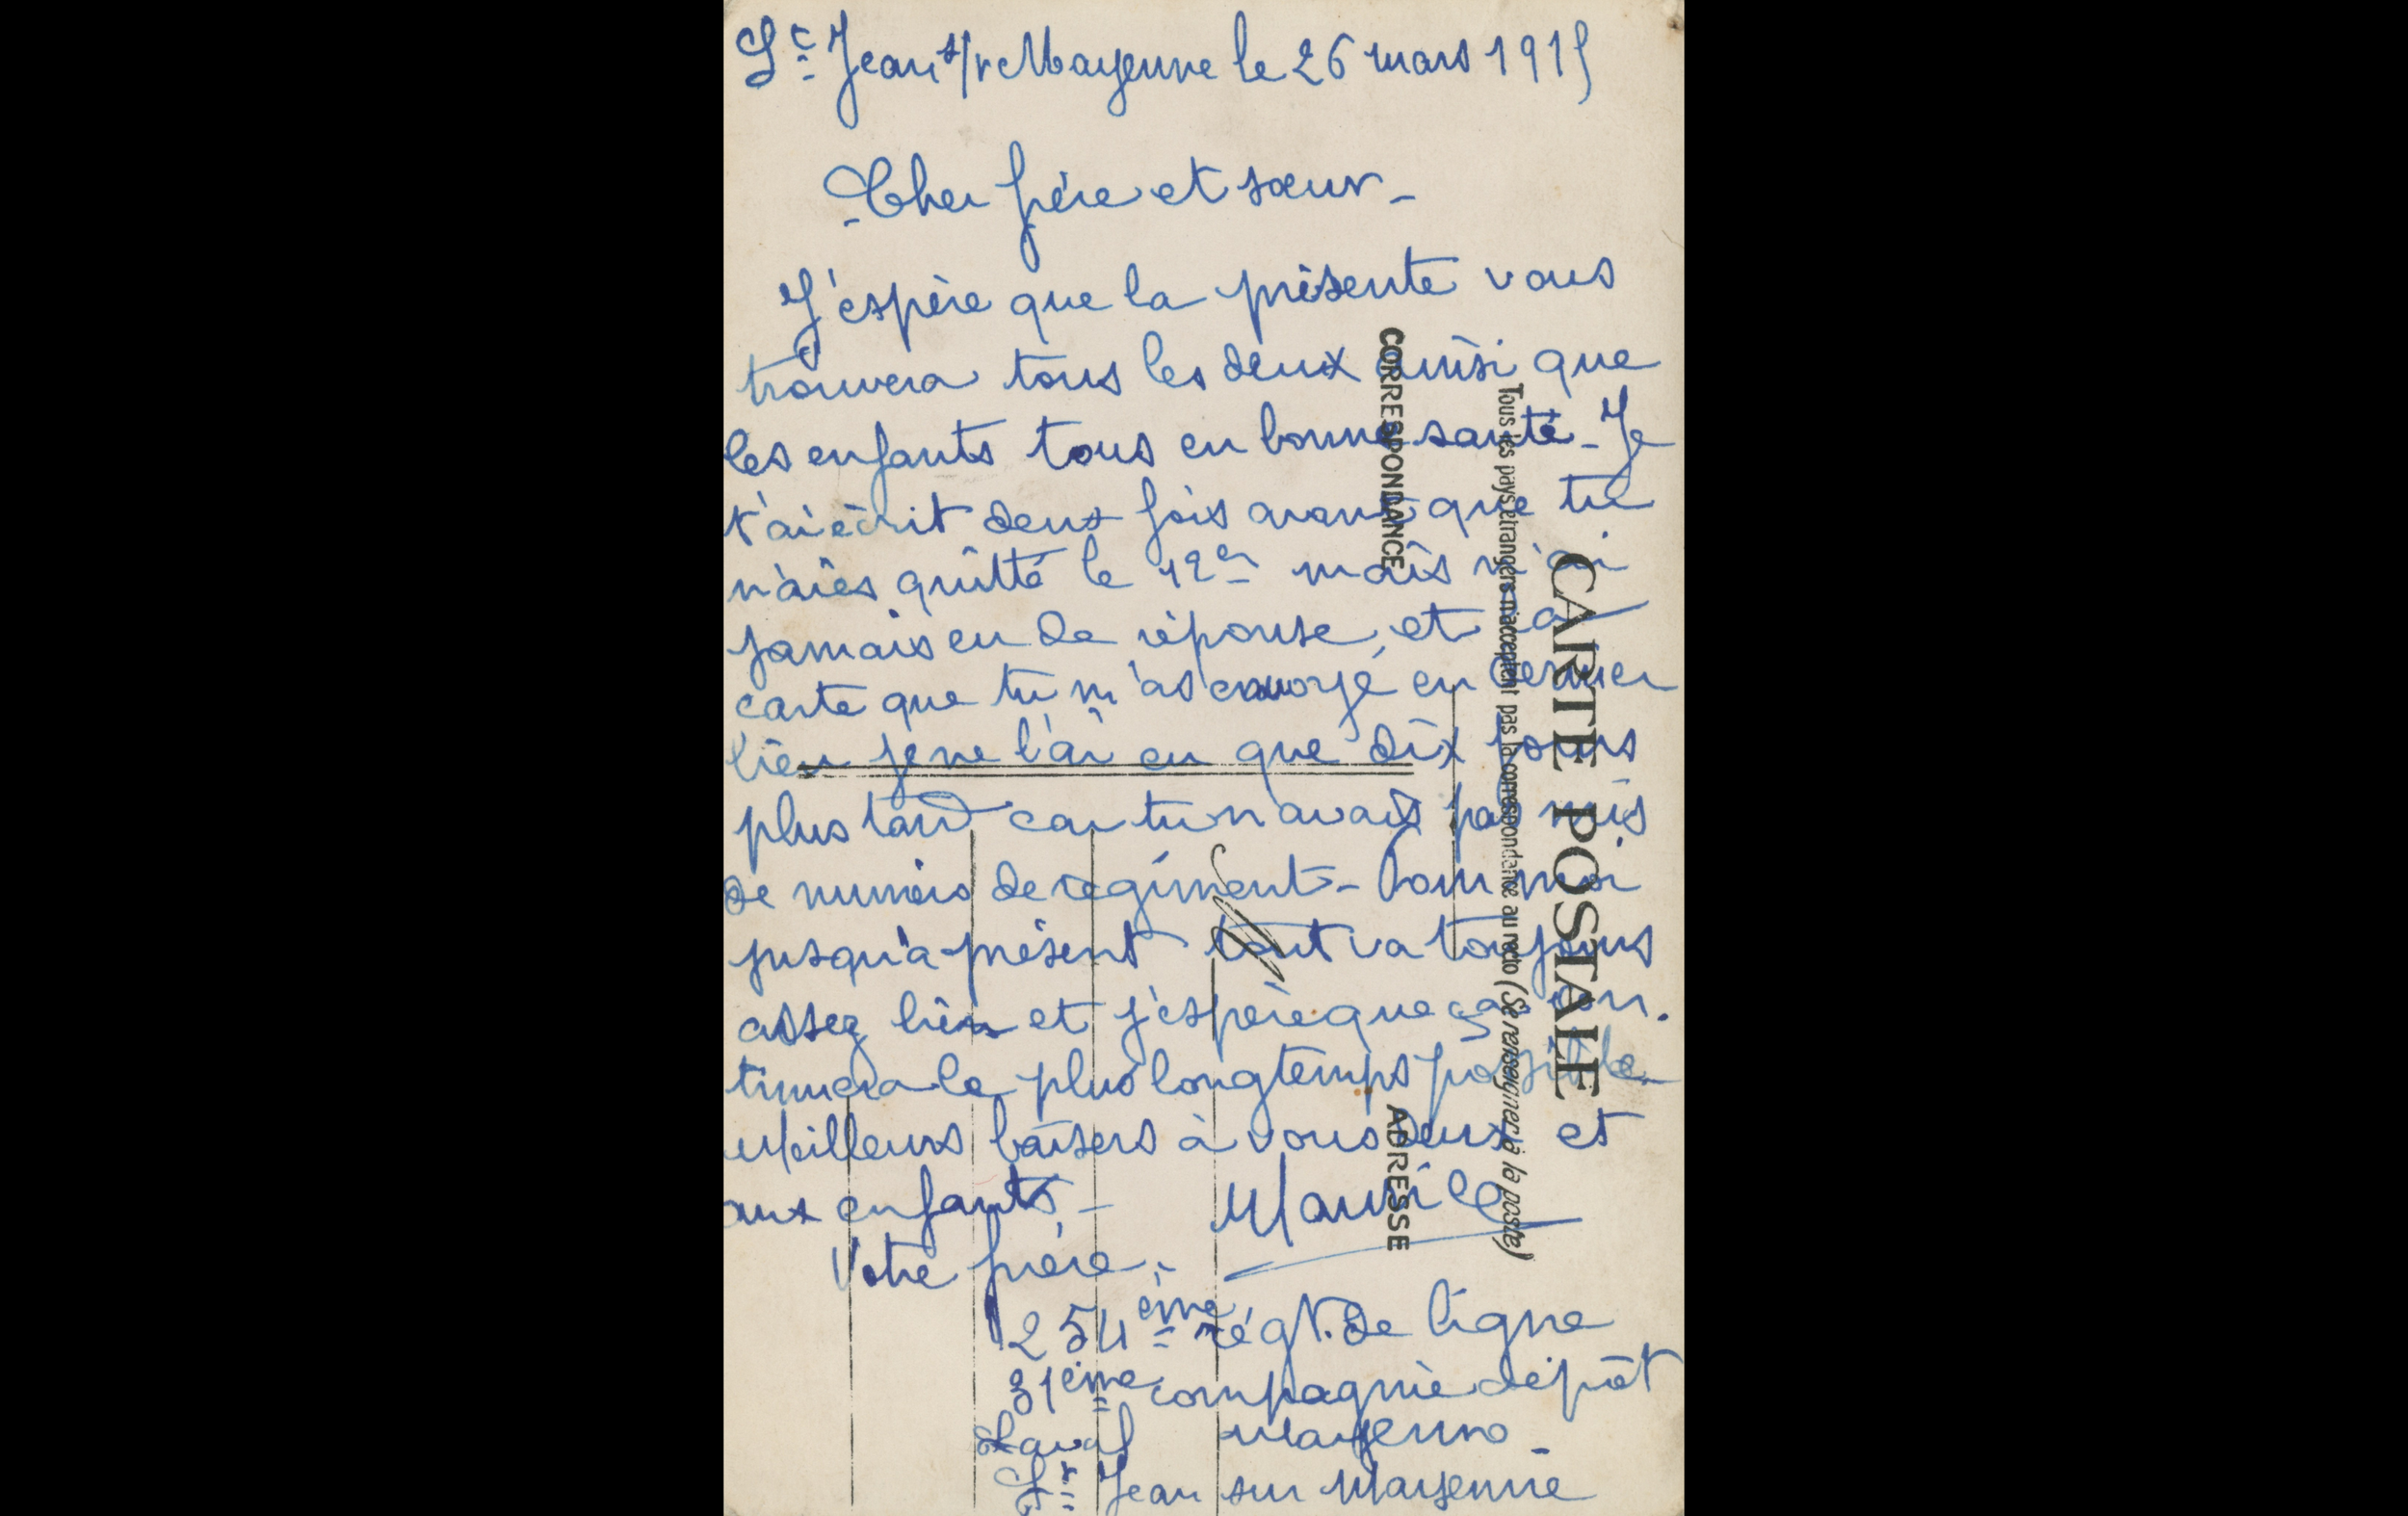 St Jean s/r Mayenne le 26 mars 1915
Cher frère et sœur -
J'espère que la présente vous
trouvera tous les deux ainsi que
les enfants tous en bonne santé - Je
t'ai écrit deux fois avant que tu
n'aies quitté le 12er mais n'ai
jamais eu de réponse, et la
carte que tu m'as envoyé en dernier
lieu je ne l'ai eu que dix jours
plus tard car tu n'avais pas mis
de numéro de régiment - Pour moi
jusqu'à présent tout va toujours
assez bien et j'espère que ça con.
tinuera le plus longtemps possible -
Meilleurs baisers à vous deux et
aux enfants - Maurice
Votre frère.
254ème régt. de ligne
31ème compagnie dépôt
Laval Mayenne -
St Jean sur Mayenne
CARTE POSTALE
Tous les pays étrangers n'acceptent pas la correspondance au recto (Se renseigner à la poste)
CORRESPONDANCE
ADRESSE